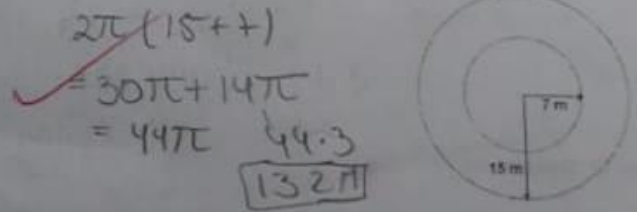 2π(15+7)
= 30π + 14π
= 44π 44.3
132π
7 m
15 m